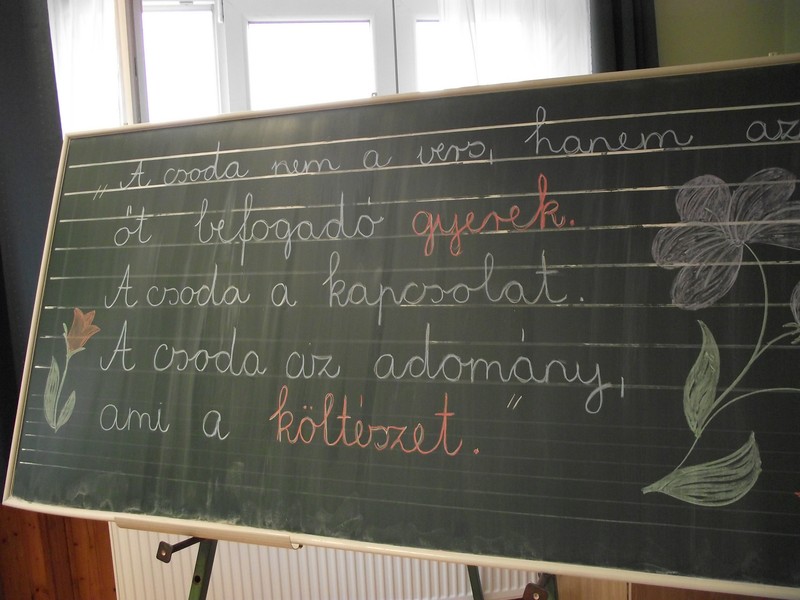 „A csoda nem a vers, hanem az
őt befogadó gyerek.
A csoda a kapcsolat.
A csoda az adomány,
ami a költészet."